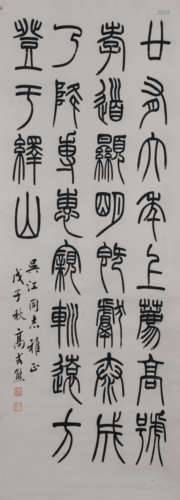 廿有六年上薦高號
孝道顯明既獻泰成
乃降尃惠寴輈遠方
登于繹山
吴江同志雅正
戊子秋高式熊